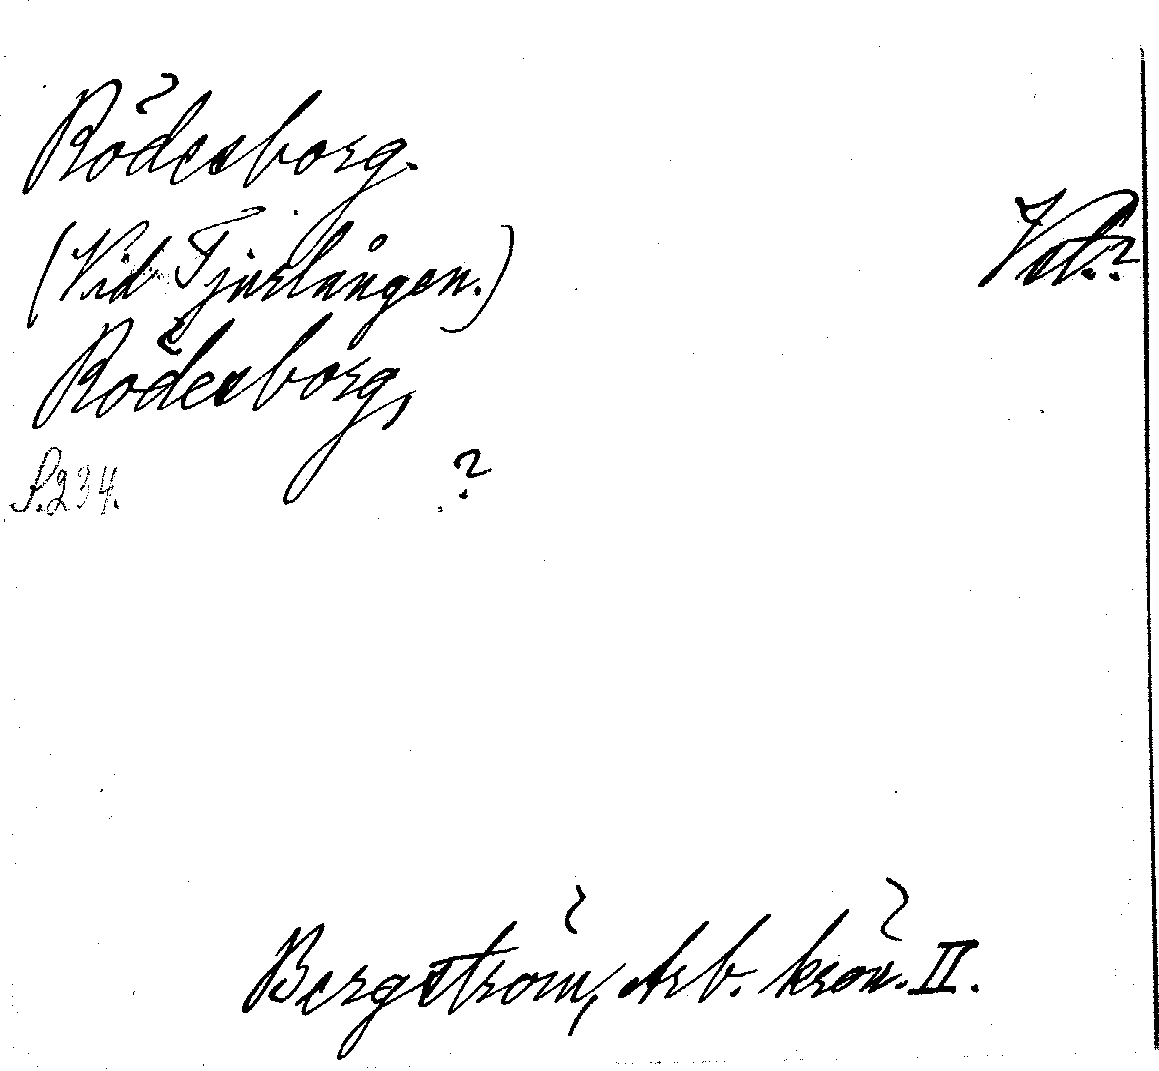 Rödesborg.
(Vid Tjurlången.)
Vstm.?
Rödesborg,
S.234.
?
Bergström, Arb. krön. II.